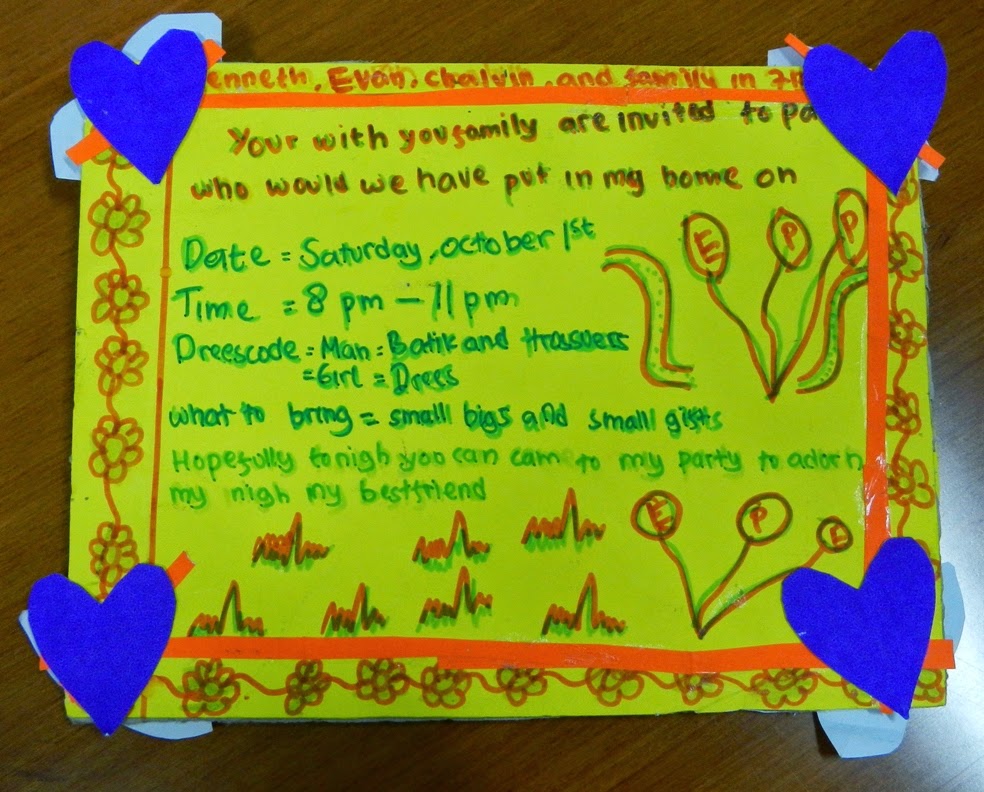 enneth, Evan, chalvin, and family in
Your with you family are invited to pa
who would we have put in my home on
Date = Saturday, october 1st
Time = 8 pm – 11 pm
Dreescode = Man = Batik and trossuers
= Girl = Drees
what to bring = small bigs and small gifts
Hopefully tonigh you can came to my party to adorn
my nigh my bestfriend
E P P
E P E